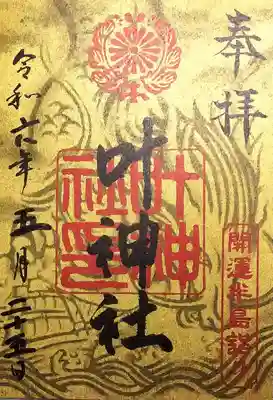 奉拝
開運半島詣り
叶神社
叶神
社印
令和六年五月二十五日